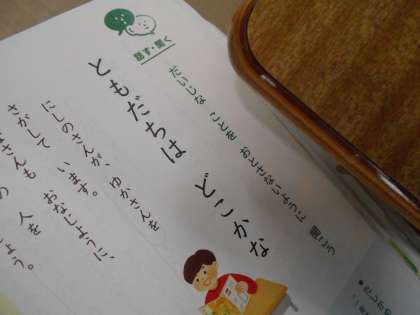 話す・聞く
だいじな ことを おとさないように 聞こう
ともだちは どこかな
にしのさんが、ゆかさんを
さがして います。おなじように、